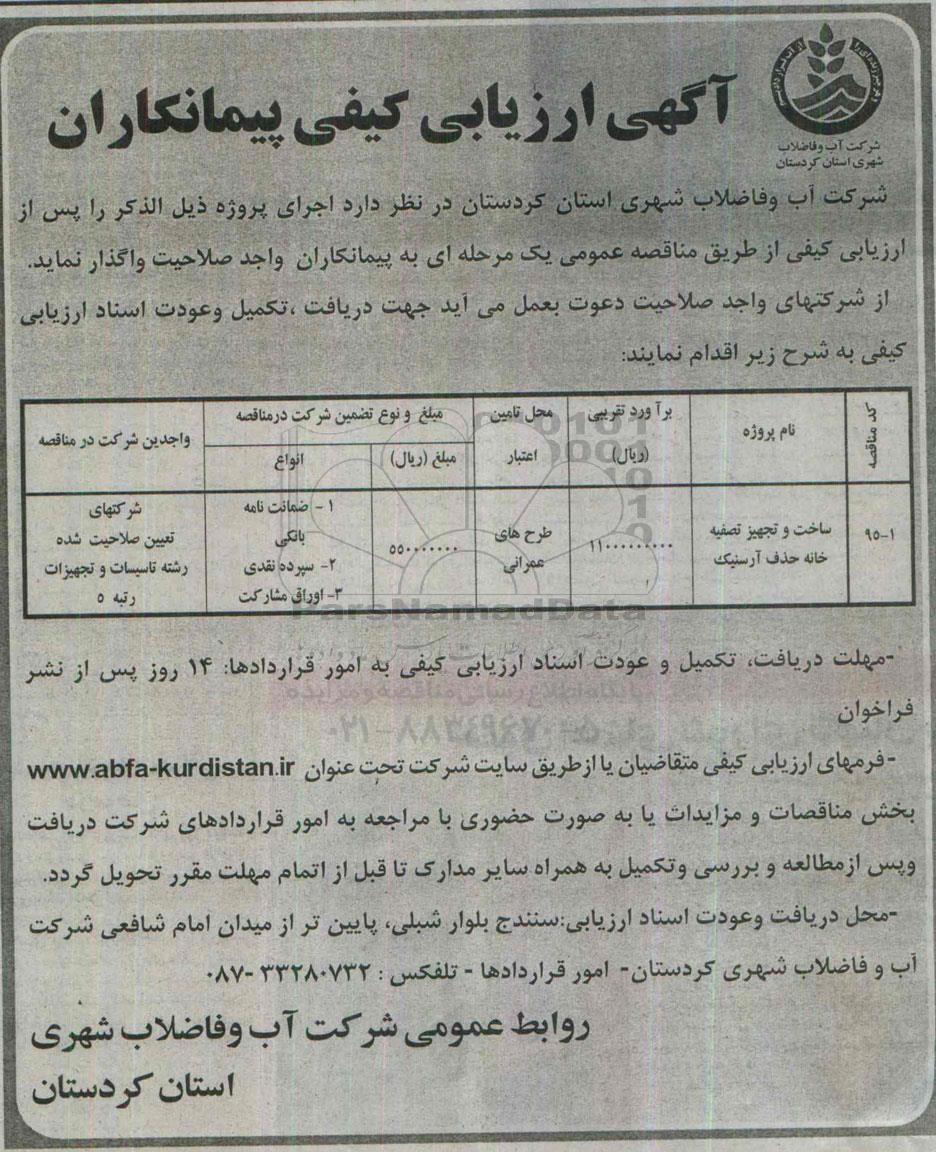 شرکت آب وفاضلاب
شهری استان کردستان
آگهی ارزیابی کیفی پیمانکاران
شرکت آب وفاضلاب شهری استان کردستان در نظر دارد اجرای پروژه ذیل الذکر را پس از
ارزیابی کیفی از طریق مناقصه عمومی یک مرحله ای به پیمانکاران واجد صلاحیت واگذار نماید.
از شرکتهای واجد صلاحیت دعوت بعمل می آید جهت دریافت ،تکمیل وعودت اسناد ارزیابی
کیفی به شرح زیر اقدام نمایند:
کد مناقصه
نام پروژه
برآ ورد تقریبی
(ریال)
محل تامین
اعتبار
مبلغ و نوع تضمین شرکت درمناقصه
مبلغ (ریال)
انواع
واجدین شرکت در مناقصه
۹۵-۱
ساخت و تجهیز تصفیه
خانه حذف آرسنیک
۱۱۰۰۰۰۰۰۰۰۰
طرح های
عمرانی
۵۵۰۰۰۰۰۰۰
۱- ضمانت نامه
بانکی
۲- سپرده نقدی
۳- اوراق مشارکت
شرکتهای
تعیین صلاحیت شده
رشته تاسیسات و تجهیزات
رتبه ۵
ParsNamadData
پایگاه اطلاع رسانی مناقصه و مزایده
۰۲۱-۸۸۳۴۹۶۷۰-۵
-مهلت دریافت، تکمیل و عودت اسناد ارزیابی کیفی به امور قراردادها: ۱۴ روز پس از نشر
فراخوان
-فرمهای ارزیابی کیفی متقاضیان یا ازطریق سایت شرکت تحت عنوان www.abfa-kurdistan.ir
بخش مناقصات و مزایدات یا به صورت حضوری با مراجعه به امور قراردادهای شرکت دریافت
وپس ازمطالعه و بررسی وتکمیل به همراه سایر مدارک تا قبل از اتمام مهلت مقرر تحویل گردد.
-محل دریافت وعودت اسناد ارزیابی:سنندج بلوار شبلی، پایین تر از میدان امام شافعی شرکت
آب و فاضلاب شهری کردستان- امور قراردادها - تلفکس : ۳۳۲۸۰۷۳۲ -۰۸۷
روابط عمومی شرکت آب وفاضلاب شهری
استان کردستان